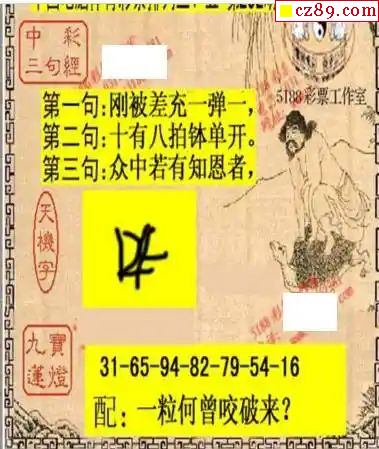 cz89.com
中彩
三句經
5188彩票工作室
第一句:刚被差充一弹一,
第二句:十有八拍钵单开。
第三句:众中若有知恩者,
天機字
九寶
蓮燈
31-65-94-82-79-54-16
配:一粒何曾咬破来?